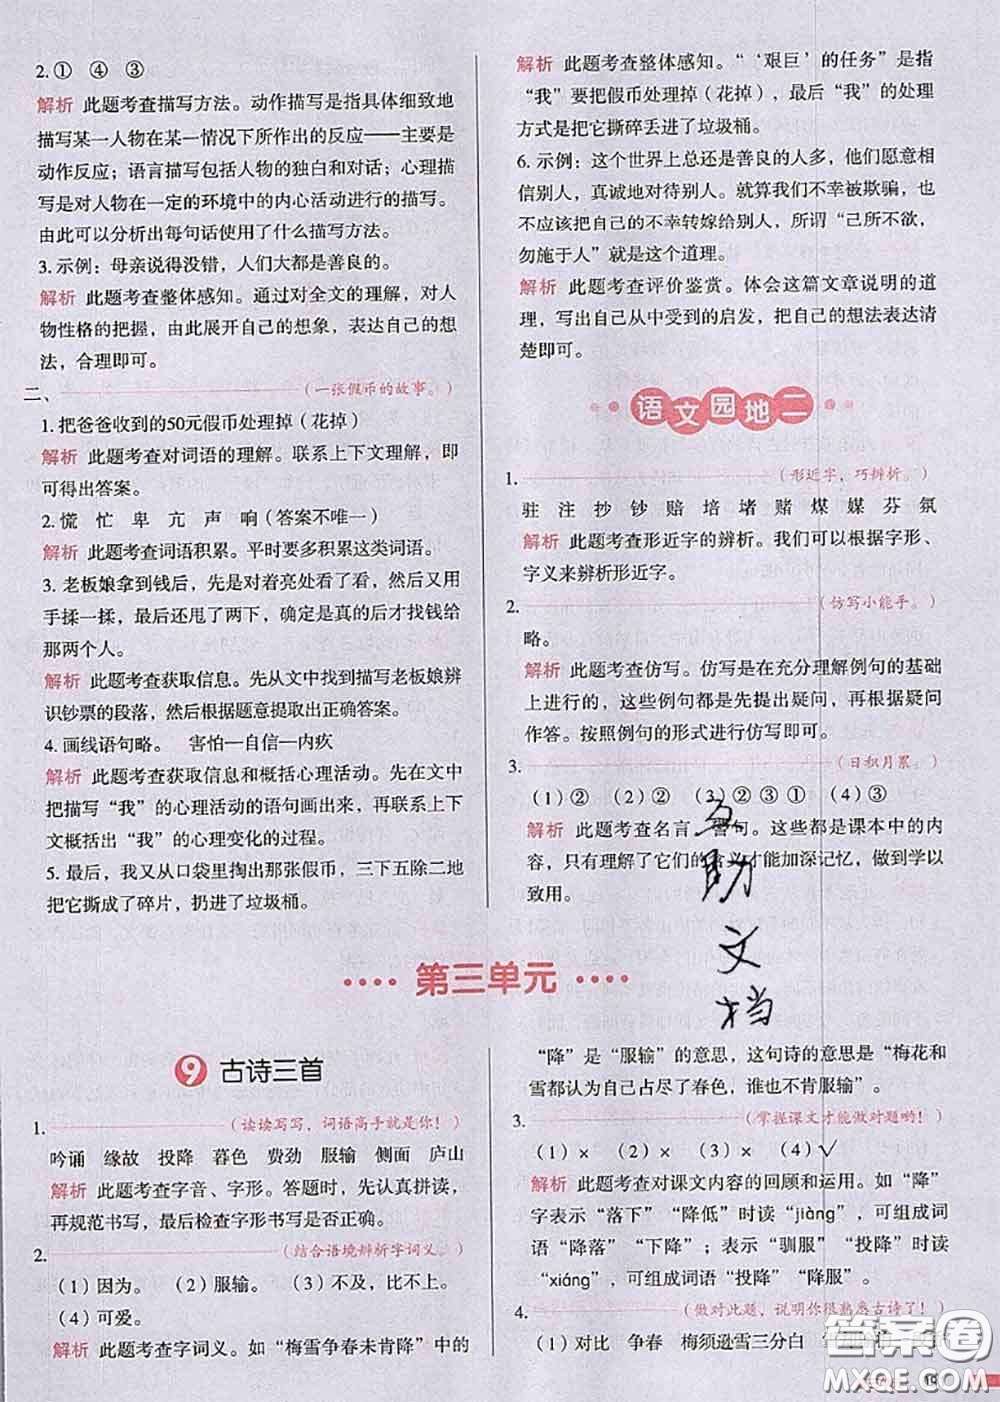 2.① ④ ③
解析 此题考查描写方法。动作描写是指具体细致地
描写某一人物在某一情况下所作出的反应——主要是
动作反应；语言描写包括人物的独白和对话；心理描
写是对人物在一定的环境中的内心活动进行的描写。
由此可以分析出每句话使用了什么描写方法。
3. 示例：母亲说得没错，人们大都是善良的。
解析 此题考查整体感知。通过对全文的理解，对人
物性格的把握，由此展开自己的想象，表达自己的想
法，合理即可。
二、（一张假币的故事。）
1.把爸爸收到的50元假币处理掉（花掉）
解析 此题考查对词语的理解。联系上下文理解，即
可得出答案。
2.慌 忙 卑 亢 声 响（答案不唯一）
解析 此题考查词语积累。平时要多积累这类词语。
3. 老板娘拿到钱后，先是对着亮处看了看，然后又用
手揉一揉，最后还弹了两下，确定是真的后才找钱给
那两个人。
解析 此题考查获取信息。先从文中找到描写老板娘辨
识钞票的段落，然后根据题意提取出正确答案。
4. 画线语句略。 害怕—自信—内疚
解析 此题考查获取信息和概括心理活动。先在文中
把描写“我”的心理活动的语句画出来，再联系上下
文概括出“我”的心理变化的过程。
5. 最后，我又从口袋里掏出那张假币，三下五除二地
把它撕成了碎片，扔进了垃圾桶。
解析 此题考查整体感知。“‘艰巨’的任务”是指
“我”要把假币处理掉（花掉），最后“我”的处理
方式是把它撕碎丢进了垃圾桶。
6. 示例：这个世界上总还是善良的人多，他们愿意相
信别人，真诚地对待别人。就算我们不幸被欺骗，也
不应该把自己的不幸转嫁给别人，所谓“己所不欲，
勿施于人”就是这个道理。
解析 此题考查评价鉴赏。体会这篇文章说明的道
理，写出自己从中受到的启发，把自己的想法表达清
楚即可。
语文园地二
1.（形近字，巧辨析。）
驻 注 抄 钞 赔 培 堵 赌 煤 媒 芬 氛
解析 此题考查形近字的辨析。我们可以根据字形、
字义来辨析形近字。
2.（仿写小能手。）
略。
解析 此题考查仿写。仿写是在充分理解例句的基础
上进行的，这些例句都是先提出疑问，再根据疑问
作答。按照例句的形式进行仿写即可。
3.（日积月累。）
（1）② （2）② （3）②③① （4）③
解析 此题考查名言、警句。这些都是课本中的内
容，只有理解了它们的含义才能加深记忆，做到学以
致用。
互助文档
第三单元
9 古诗三首
1.（读读写写，词语高手就是你！）
吟诵 缘故 投降 暮色 费劲 服输 侧面 庐山
解析 此题考查字音、字形。答题时，先认真拼读，
再规范书写，最后检查字形书写是否正确。
2.（结合语境辨析字词义。）
（1）因为。 （2）服输。 （3）不及，比不上。
（4）可爱。
解析 此题考查字词义。如“梅雪争春未肯降”中的
“降”是“服输”的意思，这句诗的意思是“梅花和
雪都认为自己占尽了春色，谁也不肯服输”。
3.（掌握课文才能做对题哟！）
（1）× （2）× （3）× （4）√
解析 此题考查对课文内容的回顾和运用。如“降”
字表示“落下”“降低”时读“jiàng”，可组成词
语“降落”“下降”；表示“驯服”“投降”时读
“xiáng”，可组成词语“投降”“降服”。
4.（做对此题，说明你很熟悉古诗了！）
（1）对比 争春 梅须逊雪三分白
答案圈
MXQE.COM